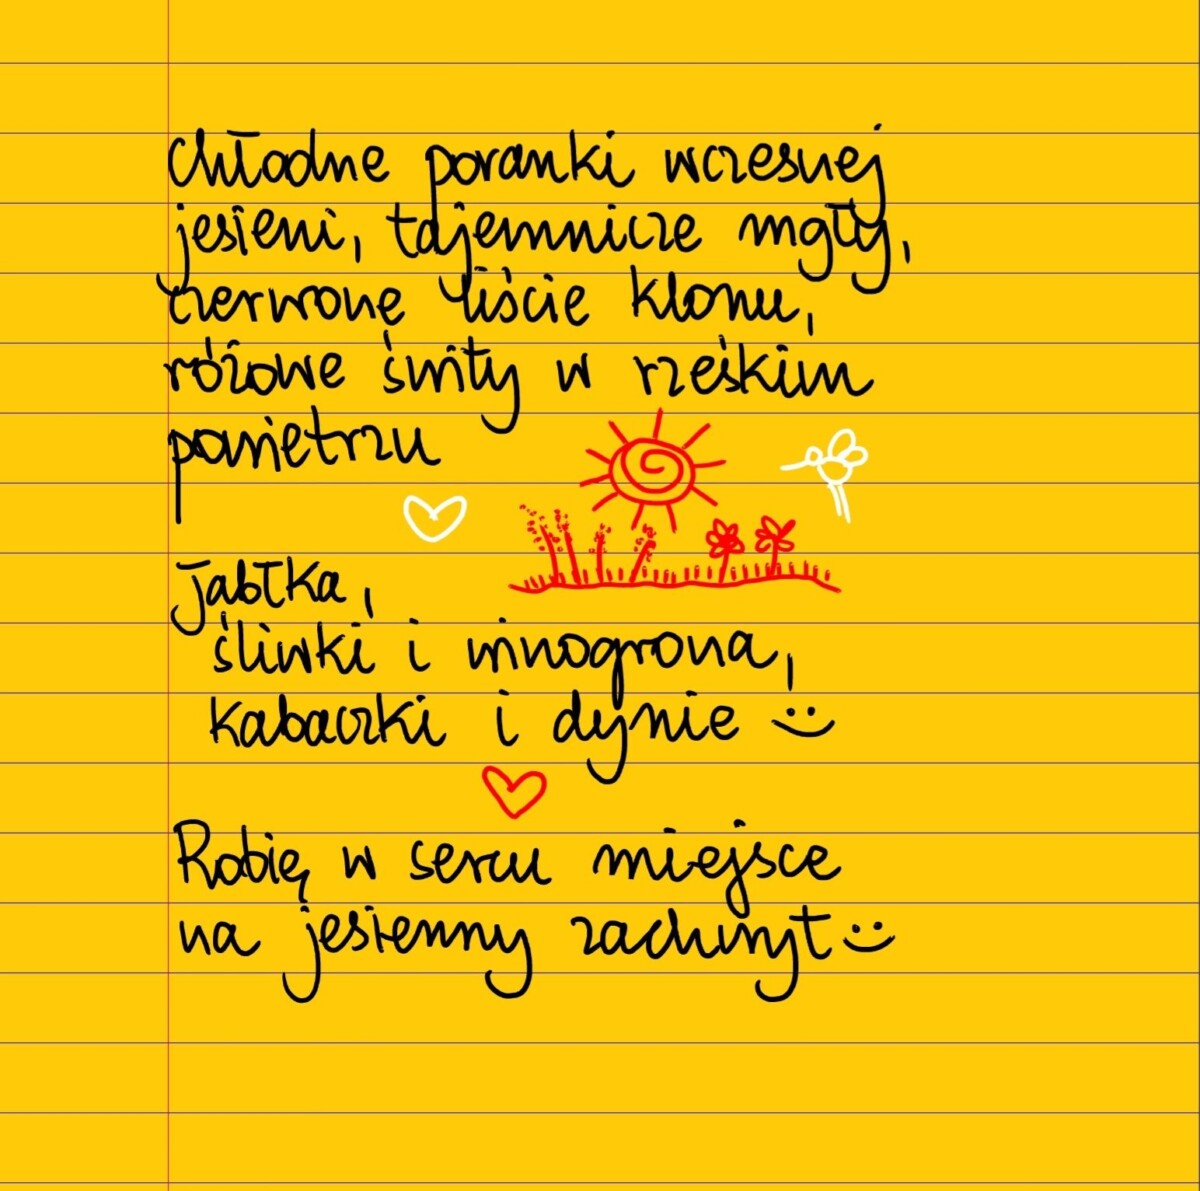 chłodne poranki wczesnej
jesieni, tajemnicze mgły,
czerwone liście klonu,
różowe świty w rześkim
powietrzu
Jabłka,
śliwki i winogrona,
kabaczki i dynie :)
Robię w sercu miejsce
na jesienny zachwyt :)